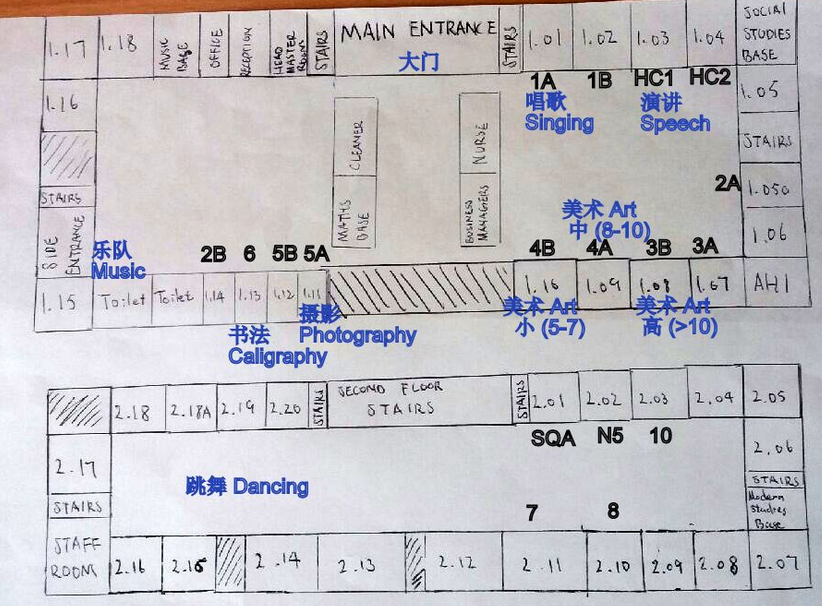 1.17
1.18
MUSIC
BASE
OFFICE
RECEPTION
HEAD
MASTER
ROOM
STAIRS
MAIN ENTRANCE
大门
STAIRS
1.01
1.02
1.03
1.04
SOCIAL
STUDIES
BASE
1A
1B
HC1
HC2
唱歌
Singing
演讲
Speech
1.16
CLEANER
NURSE
1.05
STAIRS
STAIRS
MATHS
BASE
BUSINESS
MANAGERS
2A
1.05a
美术 Art
中 (8-10)
1.06
SIDE
ENTRANCE
乐队
Music
2B
6
5B
5A
4B
4A
3B
3A
1.15
Toilet
Toilet
1.14
1.13
1.12
1.11
1.16
1.09
1.08
1.67
AH1
书法
Caligraphy
摄影
Photography
美术 Art
小 (5-7)
美术 Art
高 (>10)
2.18
2.18A
2.19
2.20
STAIRS
SECOND FLOOR
STAIRS
STAIRS
2.01
2.02
2.03
2.04
2.05
SQA
N5
10
2.17
2.06
STAIRS
跳舞 Dancing
STAIRS
Modern
Studies
Base
7
8
STAFF
ROOM
2.16
2.15
2.14
2.13
2.12
2.11
2.10
2.09
2.08
2.07